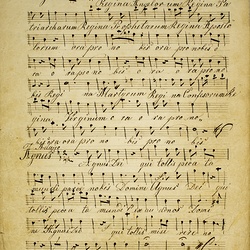 Regina Angelorum Regina Pa
triarcharum Regina Prophetarum Regina Aposto
lorum ora pro no bis ora pro nobis
ra o ra pro no bis o ra o ra pro no
bis Regi na Martyrum Regi na Confessorum
gina Virginum o ra o ra pro no
ora o ra pro no bis pro no bis
Agnus
Agnus Dei qui tollis pecca ta
mundi parce nobis Domine Agnus Dei qui
tollis pecca ta mundi exau di nos Domi
ne Agnus Dei qui tollis mise re re no